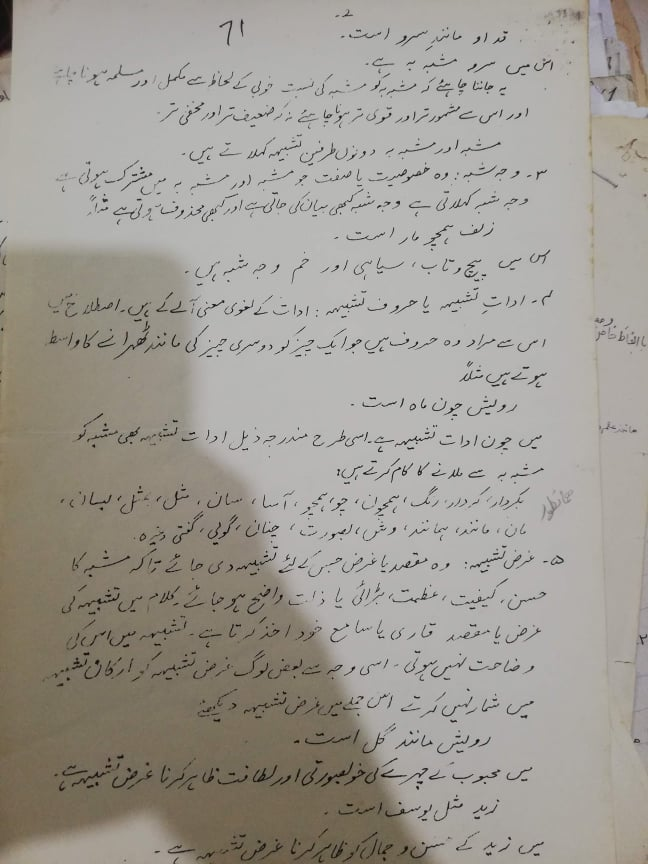 71
قد او مانندِ سرو است۔
اس میں سرو مشبہ بہ ہے۔
یہ جاننا چاہئے کہ مشبہ بہ کو مشبہ کی نسبت خوبی کے لحاظ سے مکمل اور مسلمہ ہونا چاہئے
اور اس سے مشہور تر اور قوی تر ہونا چاہئے نہ کہ ضعیف تر اور مخفی تر۔
مشبہ اور مشبہ بہ دونوں طرفینِ تشبیہہ کہلاتے ہیں۔
۳۔ وجہ شبہ: وہ خصوصیت یا صفت جو مشبہ اور مشبہ بہ میں مشترک ہوتی ہے
وجہ شبہ کہلاتی ہے وجہ شبہ کبھی بیان کی جاتی ہے اور کبھی محذوف ہوتی ہے مثلاً
زلف ہمچو مار است۔
اس میں پیچ و تاب، سیاہی اور خم وجہ شبہ ہیں۔
۴۔ اداتِ تشبیہہ یا حروف تشبیہہ: ادات کے لغوی معنی آلے کے ہیں۔ اصطلاح میں
اس سے مراد وہ حروف ہیں جو ایک چیز کو دوسری چیز کی مانند ٹھہرانے کا واسطہ
ہوتے ہیں مثلاً
رویش چون ماه است۔
میں چون ادات تشبیہہ ہے۔ اسی طرح مندرجہ ذیل ادات تشبیہہ بھی مشبہ کو
مشبہ بہ سے ملانے کا کام کرتے ہیں:
بکردار، کردار، رنگ، ہمچون، چو، ہمچو، آسا، سان، مثل، بمثل، بسان،
مان، مانند، ہمانند، وش، بصورت، چنان، گویی، گفتی وغیرہ۔
۵۔ غرض تشبیہہ: وہ مقصد یا غرض جس کے لئے تشبیہہ دی جائے تاکہ مشبہ کا
حسن، کیفیت، عظمت، بڑائی یا ذلت واضح ہو جائے۔ کلام میں تشبیہہ کی
غرض یا مقصد قاری یا سامع خود اخذ کرتا ہے۔ تشبیہہ میں اس کی
وضاحت نہیں ہوتی۔ اسی وجہ سے بعض لوگ غرض تشبیہہ کو ارکان تشبیہہ
میں شمار نہیں کرتے اس جملے میں غرض تشبیہہ دیکھئے
رویش مانند گل است۔
میں محبوب کے چہرے کی خوبصورتی اور لطافت ظاہر کرنا غرض تشبیہہ ہے۔
زید مثل یوسف است۔
میں زید کے حسن و جمال کو ظاہر کرنا غرض تشبیہہ ہے۔